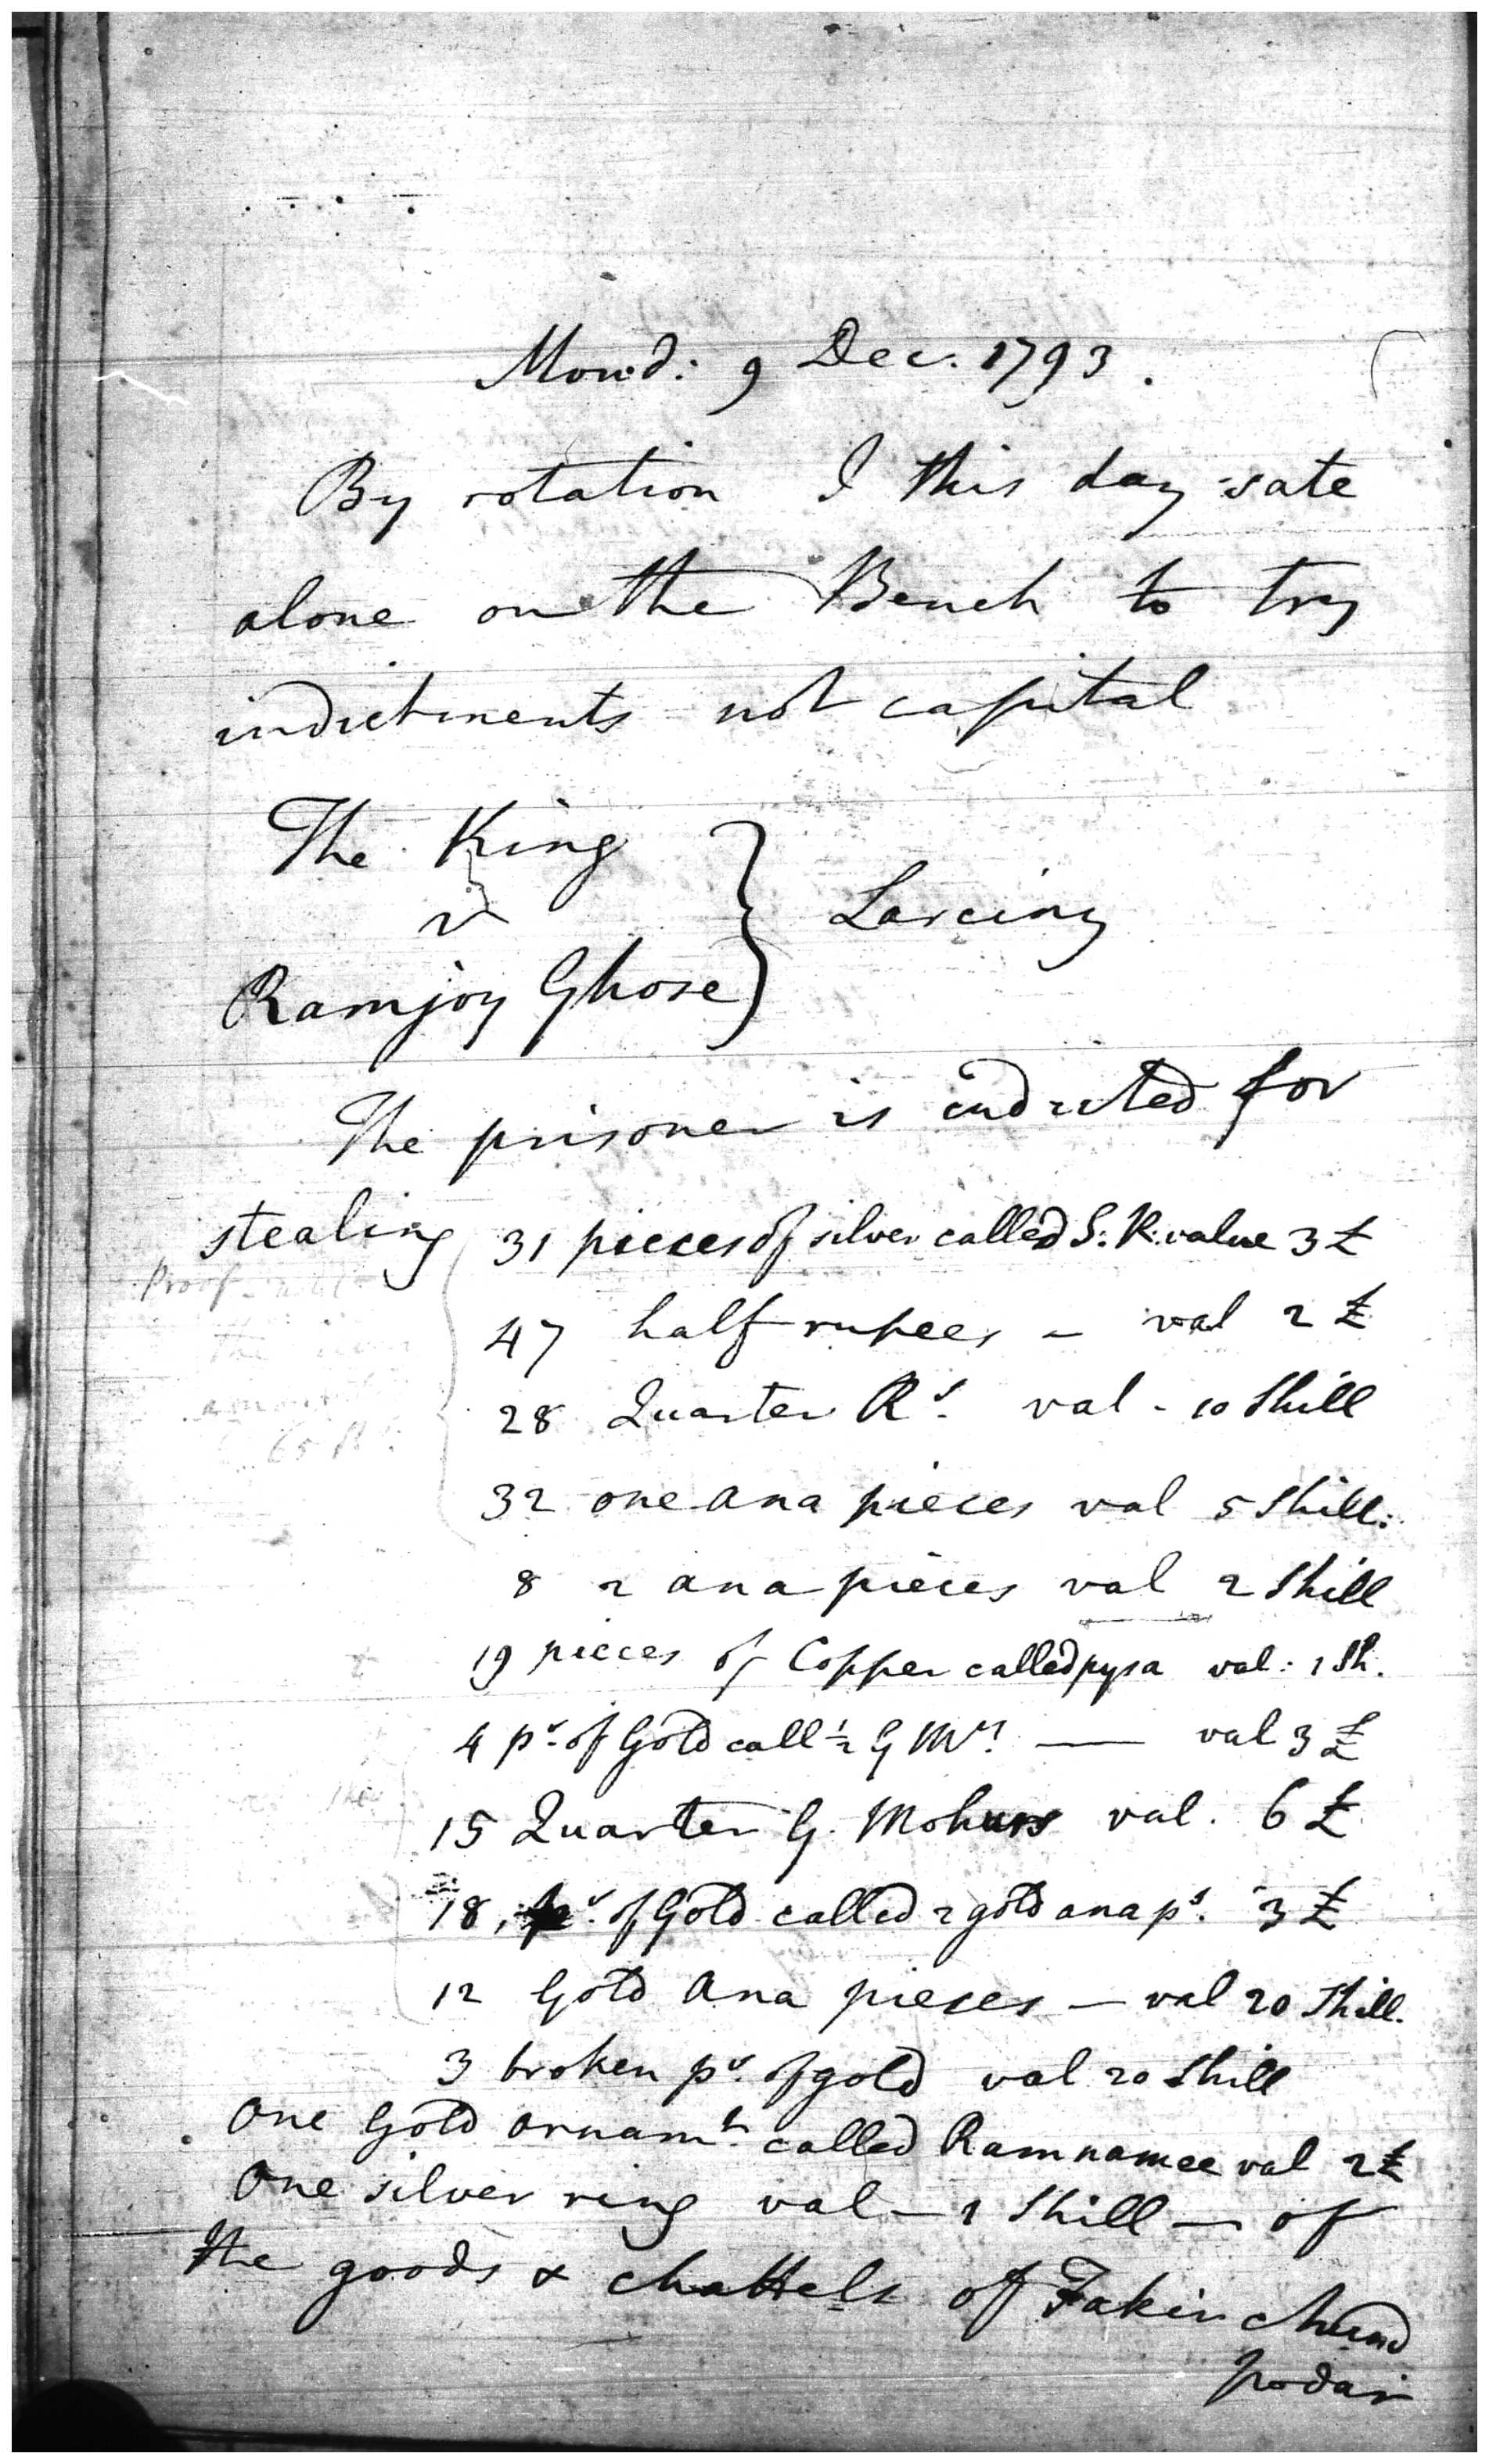 Mond: 9 Dec. 1793.
By rotation I this day sate
alone on the Bench to try
indictments not capital
The King
v
Ramjoy Ghose } Larceny
The prisoner is indicted for
stealing 31 pieces of silver called S: R: value 3 £
Proof
47 half rupees - val 2 £
28 Quarter Rs. val - 10 Shill
65 Rs.
32 one ana pieces val 5 Shill:
8 2 ana pieces val 2 Shill
19 pieces of Copper called pysa val: 1 Sh.
4 ps. of Gold call ½ G Mrs. — val 3 £
15 Quarter G. Mohurs val. 6 £
18, ps. of Gold called 2 gold ana ps. 3 £
12 Gold Ana pieces — val 20 Shill.
3 broken ps. of gold val 20 Shill
One Gold ornamt. called Ramnamee val 2 £
One silver ring val - 1 Shill — of
the goods & chattels of Fakir Chund
podar